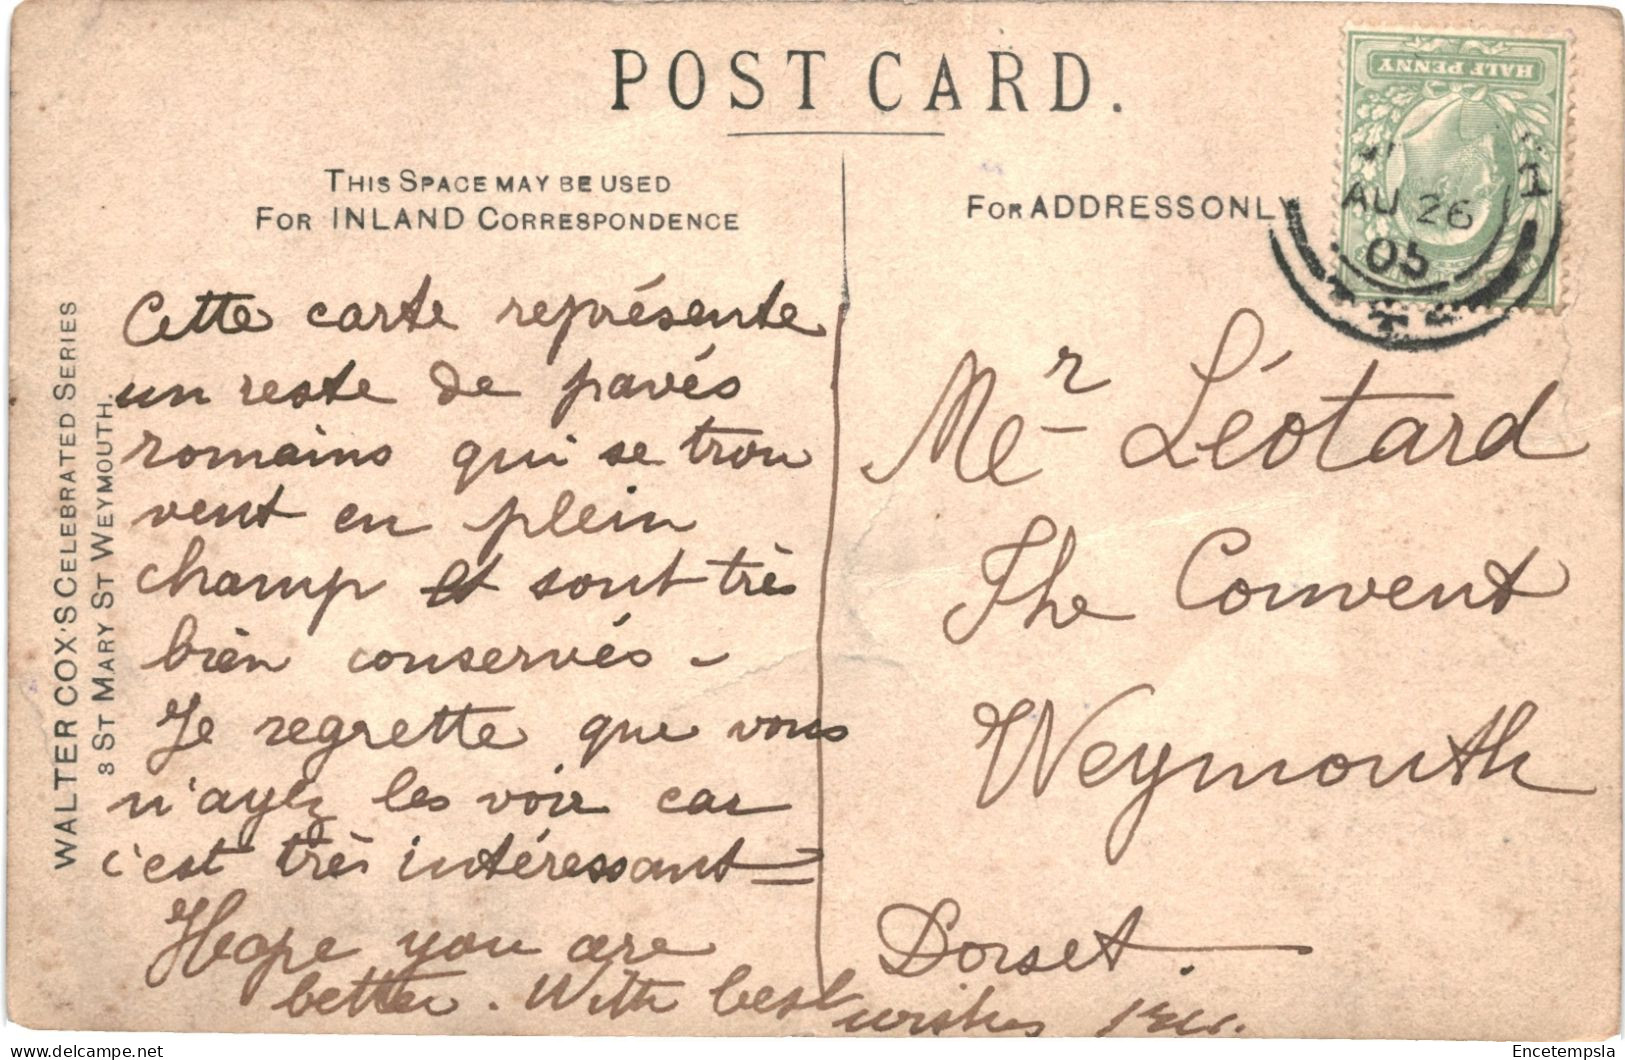 POST CARD.
THIS SPACE MAY BE USED
FOR INLAND CORRESPONDENCE
FOR ADDRESS ONLY
HALF PENNY
AU 26
05
WALTER COX'S CELEBRATED SERIES
8 ST MARY ST WEYMOUTH.
Cette carte représente
un reste de pavés
romains qui se trou
vent en plein
champ et sont très
bien conservés –
Je regrette que vous
n'ayez les voir car
c'est très intéressant =
Hope you are
better. With best wishes
Mr Léotard
The Convent
Weymouth
Dorset.
Encetempsla